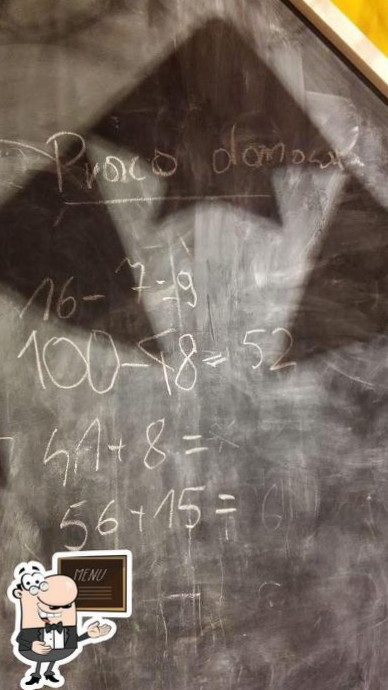 Praca domowa
16-7=9
100-48=52
41+8=
56+15=
MENU